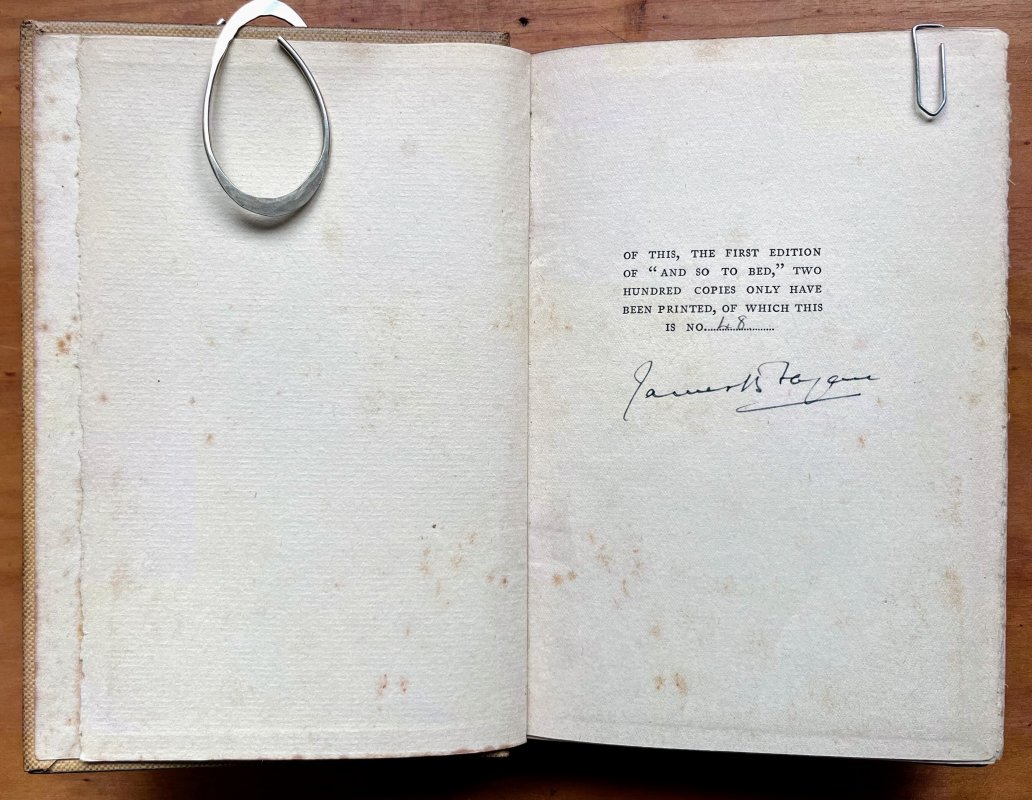 OF THIS, THE FIRST EDITION
OF “AND SO TO BED,” TWO
HUNDRED COPIES ONLY HAVE
BEEN PRINTED, OF WHICH THIS
IS NO....48..........
James B Fagan